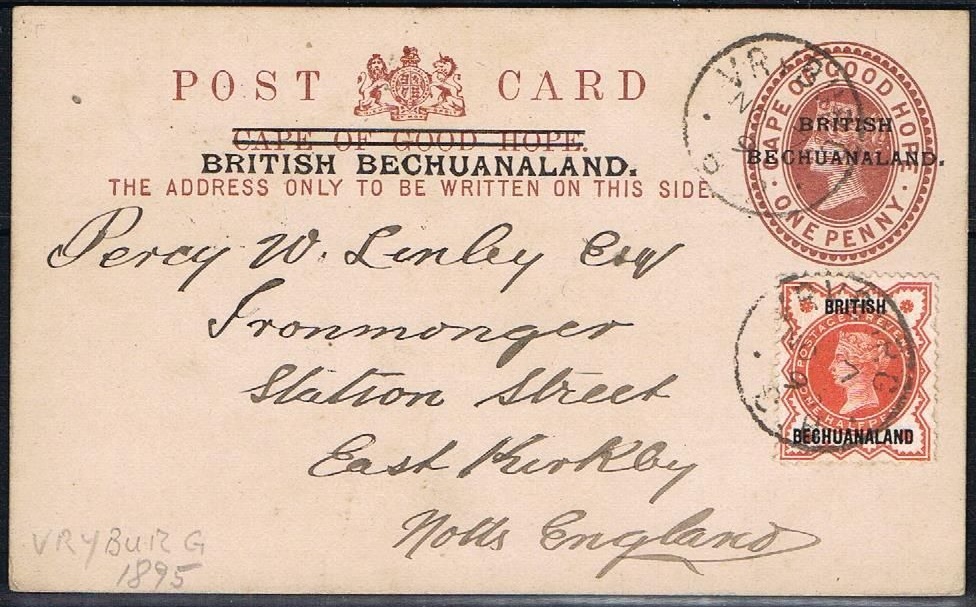 POST CARD
CAPE OF GOOD HOPE.
BRITISH BECHUANALAND.
THE ADDRESS ONLY TO BE WRITTEN ON THIS SIDE.
CAPE OF GOOD HOPE
BRITISH
BECHUANALAND.
ONE PENNY
Percy W. Linley Esq
Ironmonger
Station Street
East Kirkby
Notts England
BRITISH
POSTAGE & REVENUE
ONE HALFPENNY
BECHUANALAND
VRYBURG
1895